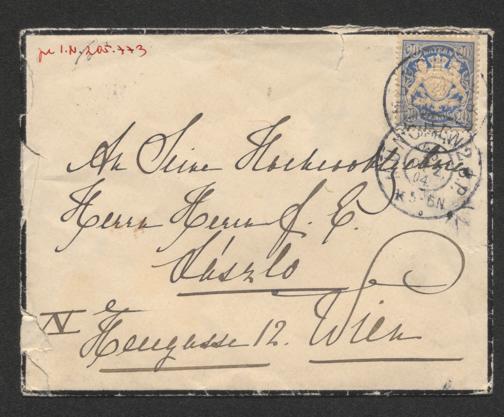 zu I.N. 205.773
An Seine Hochwohlgeboren
Herrn Herrn F. E.
László
IV
Heugasse 12. Wien
20 BAYERN 20
04
5-6N